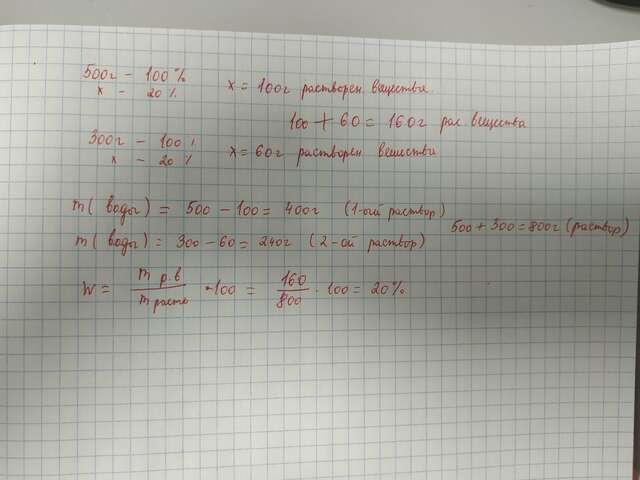 500г - 100%
x - 20%
x = 100г растворен. вещества.
100 + 60 = 160г рас. вещества
300г - 100%
x - 20%
x = 60г растворен вещества
m( воды) = 500 - 100 = 400г (1-ый раствор)
500 + 300 = 800г (раствор)
m( воды) = 300 - 60 = 240г (2-ой раствор)
W = m р.в / m раств · 100 = 160 / 800 · 100 = 20%